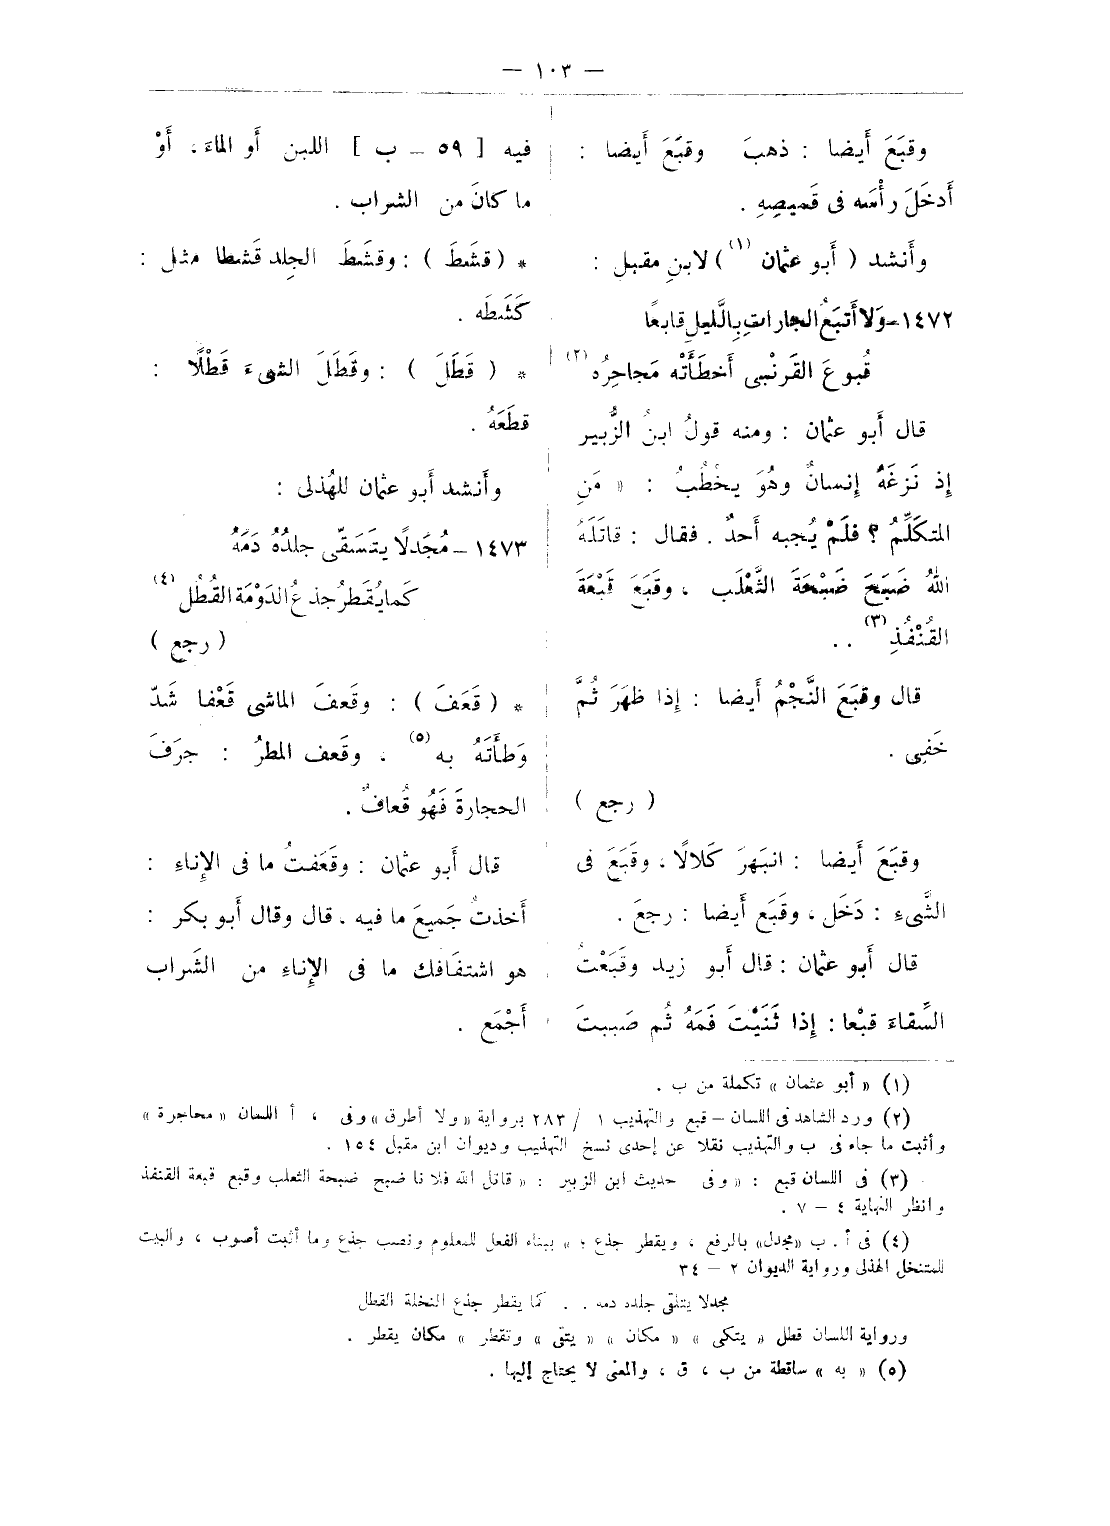 — ١٠٣ —
وقَبَعَ أَيضا : ذهبَ وقبَعَ أَيضا :
أَدخَلَ رأْسَه فى قَميصِهِ .
وأَنشد ( أَبو عثمان (١) ) لابنِ مقبل :
١٤٧٢ـ وَلا أَتبَعُ الجاراتِ بِالَّليلِ قابعًا
قُبوعَ القَرنْبى أَخطَأَتْه مَجاحِرُه (٢)
قال أَبو عثمان : ومنه قولُ ابنُ الزُّبير
إِذ نَزغَهُ إِنسانٌ وهُوَ يخْطُبُ : « مَنِ
المتكَلِّمُ ؟ فلَمْ يُجبه أَحدٌ . فقال : قاتَلَهُ
اللهُ ضَبَحَ ضَبْحَةَ الثَّعْلَب ، وقَبَعَ قَبْعَةَ
القُنْفُذِ (٣) ..
قال وقبَعَ النَّجْمُ أَيضا : إِذا ظهَرَ ثُمَّ
خَفِى .
( رجع )
وقبَعَ أَيضا : انبَهرَ كَلالًا ، وقَبَعَ فى
الشَّىءِ : دَخَل ، وقبَع أَيضا : رجعَ .
قال أَبو عثمان : قال أَبو زيد وقَبَعْتُ
السِّقاءَ قبْعا : إِذا ثَنَيْتَ فَمَهُ ثُم صَببتَ
فيه [ ٥٩ ـ ب ] اللبن أَو الماءَ ، أَوْ
ما كانَ من الشراب .
* ( قشَطَ ) : وقشَطَ الجِلد قَشطا مثل :
كَشَطَه .
* ( قَطَلَ ) : وقَطَلَ الشىءَ قَطْلًا :
قطَعَهُ .
وأَنشد أَبو عثمان للهُذلى :
١٤٧٣ ـ مُجَدلًا يتَسَقّى جلدُهُ دَمَهُ
كَما يُقَطرُ جذعُ الدَوْمَة القُطُل (٤)
( رجع )
* ( قَعَفَ ) : وقَعفَ الماشى قَعْفا شَدّ
وَطأَتَهُ به (٥) ، وقَعف المطرُ : جرَفَ
الحجارةَ فَهُو قُعافٌ .
قال أَبو عثمان : وقَعَفتُ ما فى الإِناءِ :
أَخذتُ جَميعَ ما فيه ، قال وقال أَبو بكر :
هو اشتفَافك ما فى الإِناءِ من الشَراب
أَجْمَع .
(١) « أبو عثمان » تكملة من ب .
(٢) ورد الشاهد فى اللسان – قبع والتهذيب ١ / ٢٨٣ برواية « ولا أطرق » وفى ، أ اللسان « محاجرة »
وأثبت ما جاء فى ب والتهذيب نقلا عن إحدى نسخ التهذيب وديوان ابن مقبل ١٥٤ .
(٣) فى اللسان قبع : « وفى حديث ابن الزبير : « قاتل الله فلانا ضبح ضبحة الثعلب وقبع قبعة القنفذ
وانظر النهاية ٤ – ٧ .
(٤) فى أ . ب « مجدل » بالرفع ، ويقطر جذع ؛ » ببناء الفعل للمعلوم ونصب جذع وما أثبت أصوب ، والبيت
للمتنخل الهذلى ورواية الديوان ٢ – ٣٤
مجدلا يتلقى جلده دمه . . كما يقطر جذع النخلة القطل
ورواية اللسان قطل « يتكى » « مكان » « يتقى » وتقطر » مكان يقطر .
(٥) « به » ساقطة من ب ، ق ، والمعنى لا يحتاج إليها .